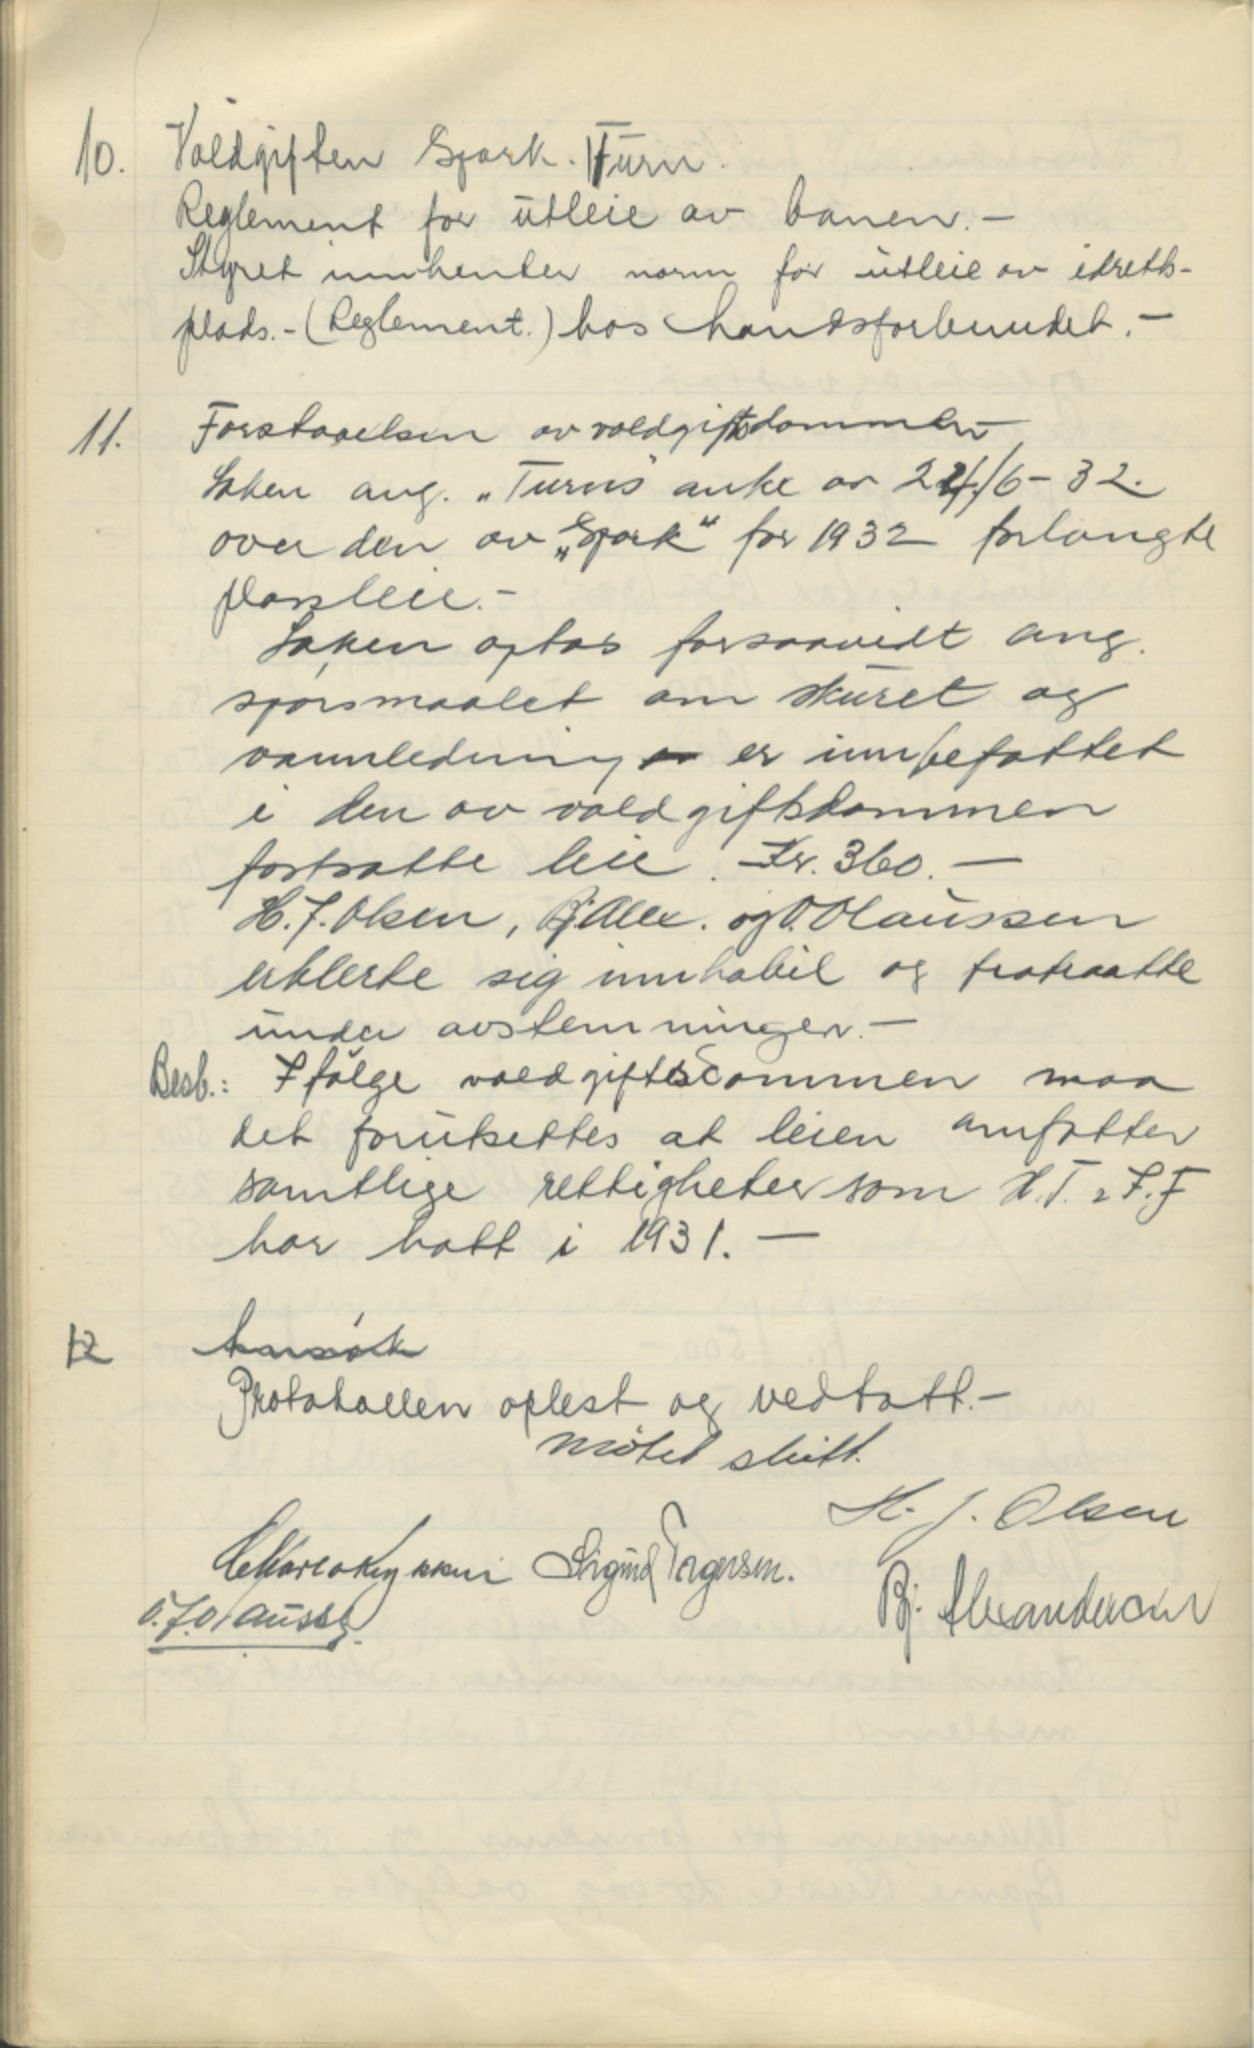 10. Voldgiften Spark. Turn.
Reglement for utleie av banen.-
Styret innhenter norm for utleie av idretts-
plads.-(Reglement.) hos Landsforbundet.-
11. Forstaaelsen av voldgiftsdommen
Saken ang. „Turns" anke av 24/6-32.
over den av „Spark" for 1932 forlangte
plassleie.-
Saken optas forsaavidt ang.
spørsmaalet om skuret og
vannledning er innbefattet
i den av voldgiftsdommen
fastsatte leie. Kr. 360.-
H.J. Olsen, Bj. Alex. og O. Olaussen
erklerte sig innhabil og fratraatte
under avstemningen.-
Besl.: Ifølge voldgiftsdommen maa
det forutsettes at leien omfatter
samtlige rettigheter som H.T. & I.F
har hatt i 1931.-
12
Protokollen oplest og vedtatt.-
Møtet slutt.
H. J. Olsen
Sigurd Torgersen.
Bj. Alexandersen
O.J. Olaussen